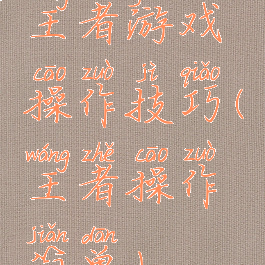 王者游戏
cāo zuò jì qiǎo
操作技巧(
wáng zhě cāo zuò
王者操作
jiǎn dān
简单)